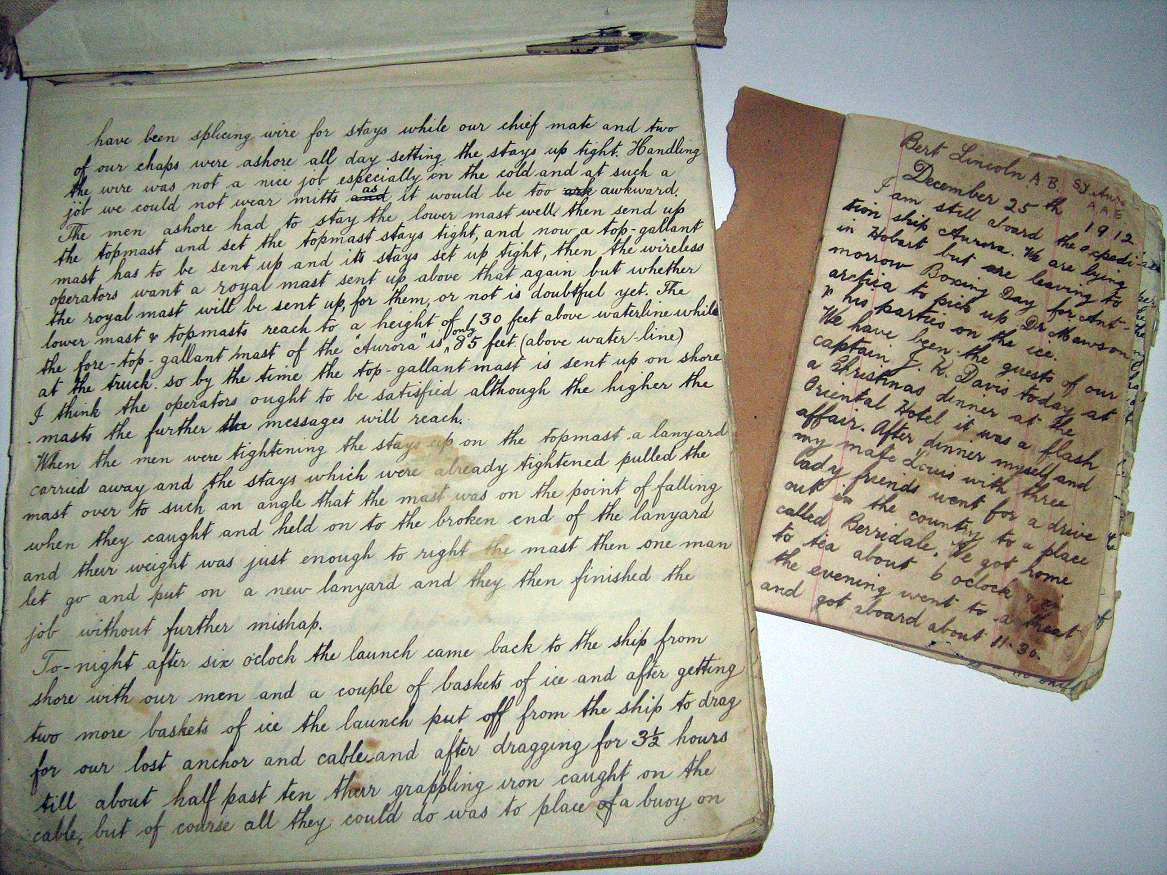 have been splicing wire for stays while our chief mate and two
of our chaps were ashore all day setting the stays up tight. Handling
the wire was not a nice job especially in the cold and at such a
job we could not wear mitts and as it would be too awk awkward,
The men ashore had to stay the lower mast well then send up
the topmast and set the topmast stays tight, and now a top-gallant
mast has to be sent up and its stays set up tight, then the wireless
operators want a royal mast sent up above that again but whether
the royal mast will be sent up, for them, or not is doubtful yet. The
lower mast & topmasts reach to a height of 130 feet above waterline while
the fore-top-gallant mast of the "Aurora" is only 85 feet (above water-line)
at the truck. so by the time the top-gallant mast is sent up on shore
I think the operators ought to be satisfied although the higher the
masts the further the messages will reach.
When the men were tightening the stays up on the topmast a lanyard
carried away and the stays which were already tightened pulled the
mast over to such an angle that the mast was on the point of falling
when they caught and held on to the broken end of the lanyard
and their weight was just enough to right the mast then one man
let go and put on a new lanyard and they then finished the
job without further mishap.
To-night after six oclock the launch came back to the ship from
shore with our men and a couple of baskets of ice and after getting
two more baskets of ice the launch put off from the ship to drag
for our lost anchor and cable and after dragging for 3½ hours
till about half past ten their grappling iron caught on the
cable, but of course all they could do was to place of a buoy on
Bert Lincoln A.B. SY. Auro
A A E
December 25th 1912
I am still aboard the expedi-
tion ship Aurora. We are lying
in Hobart but are leaving to
morrow Boxing Day for Ant-
arctica to pick up Dr Mawson
& his parties on the ice.
We have been the guests of our
captain J. K. Davis today at
a Christmas dinner at the
Oriental Hotel it was a flash
affair. After dinner myself and
my mate Louis with three
lady friends went for a drive
out in the county to a place
called Berridale. We got home
to tea about 6 oclock & in
the evening went to a theat-
and got aboard about 11.30.